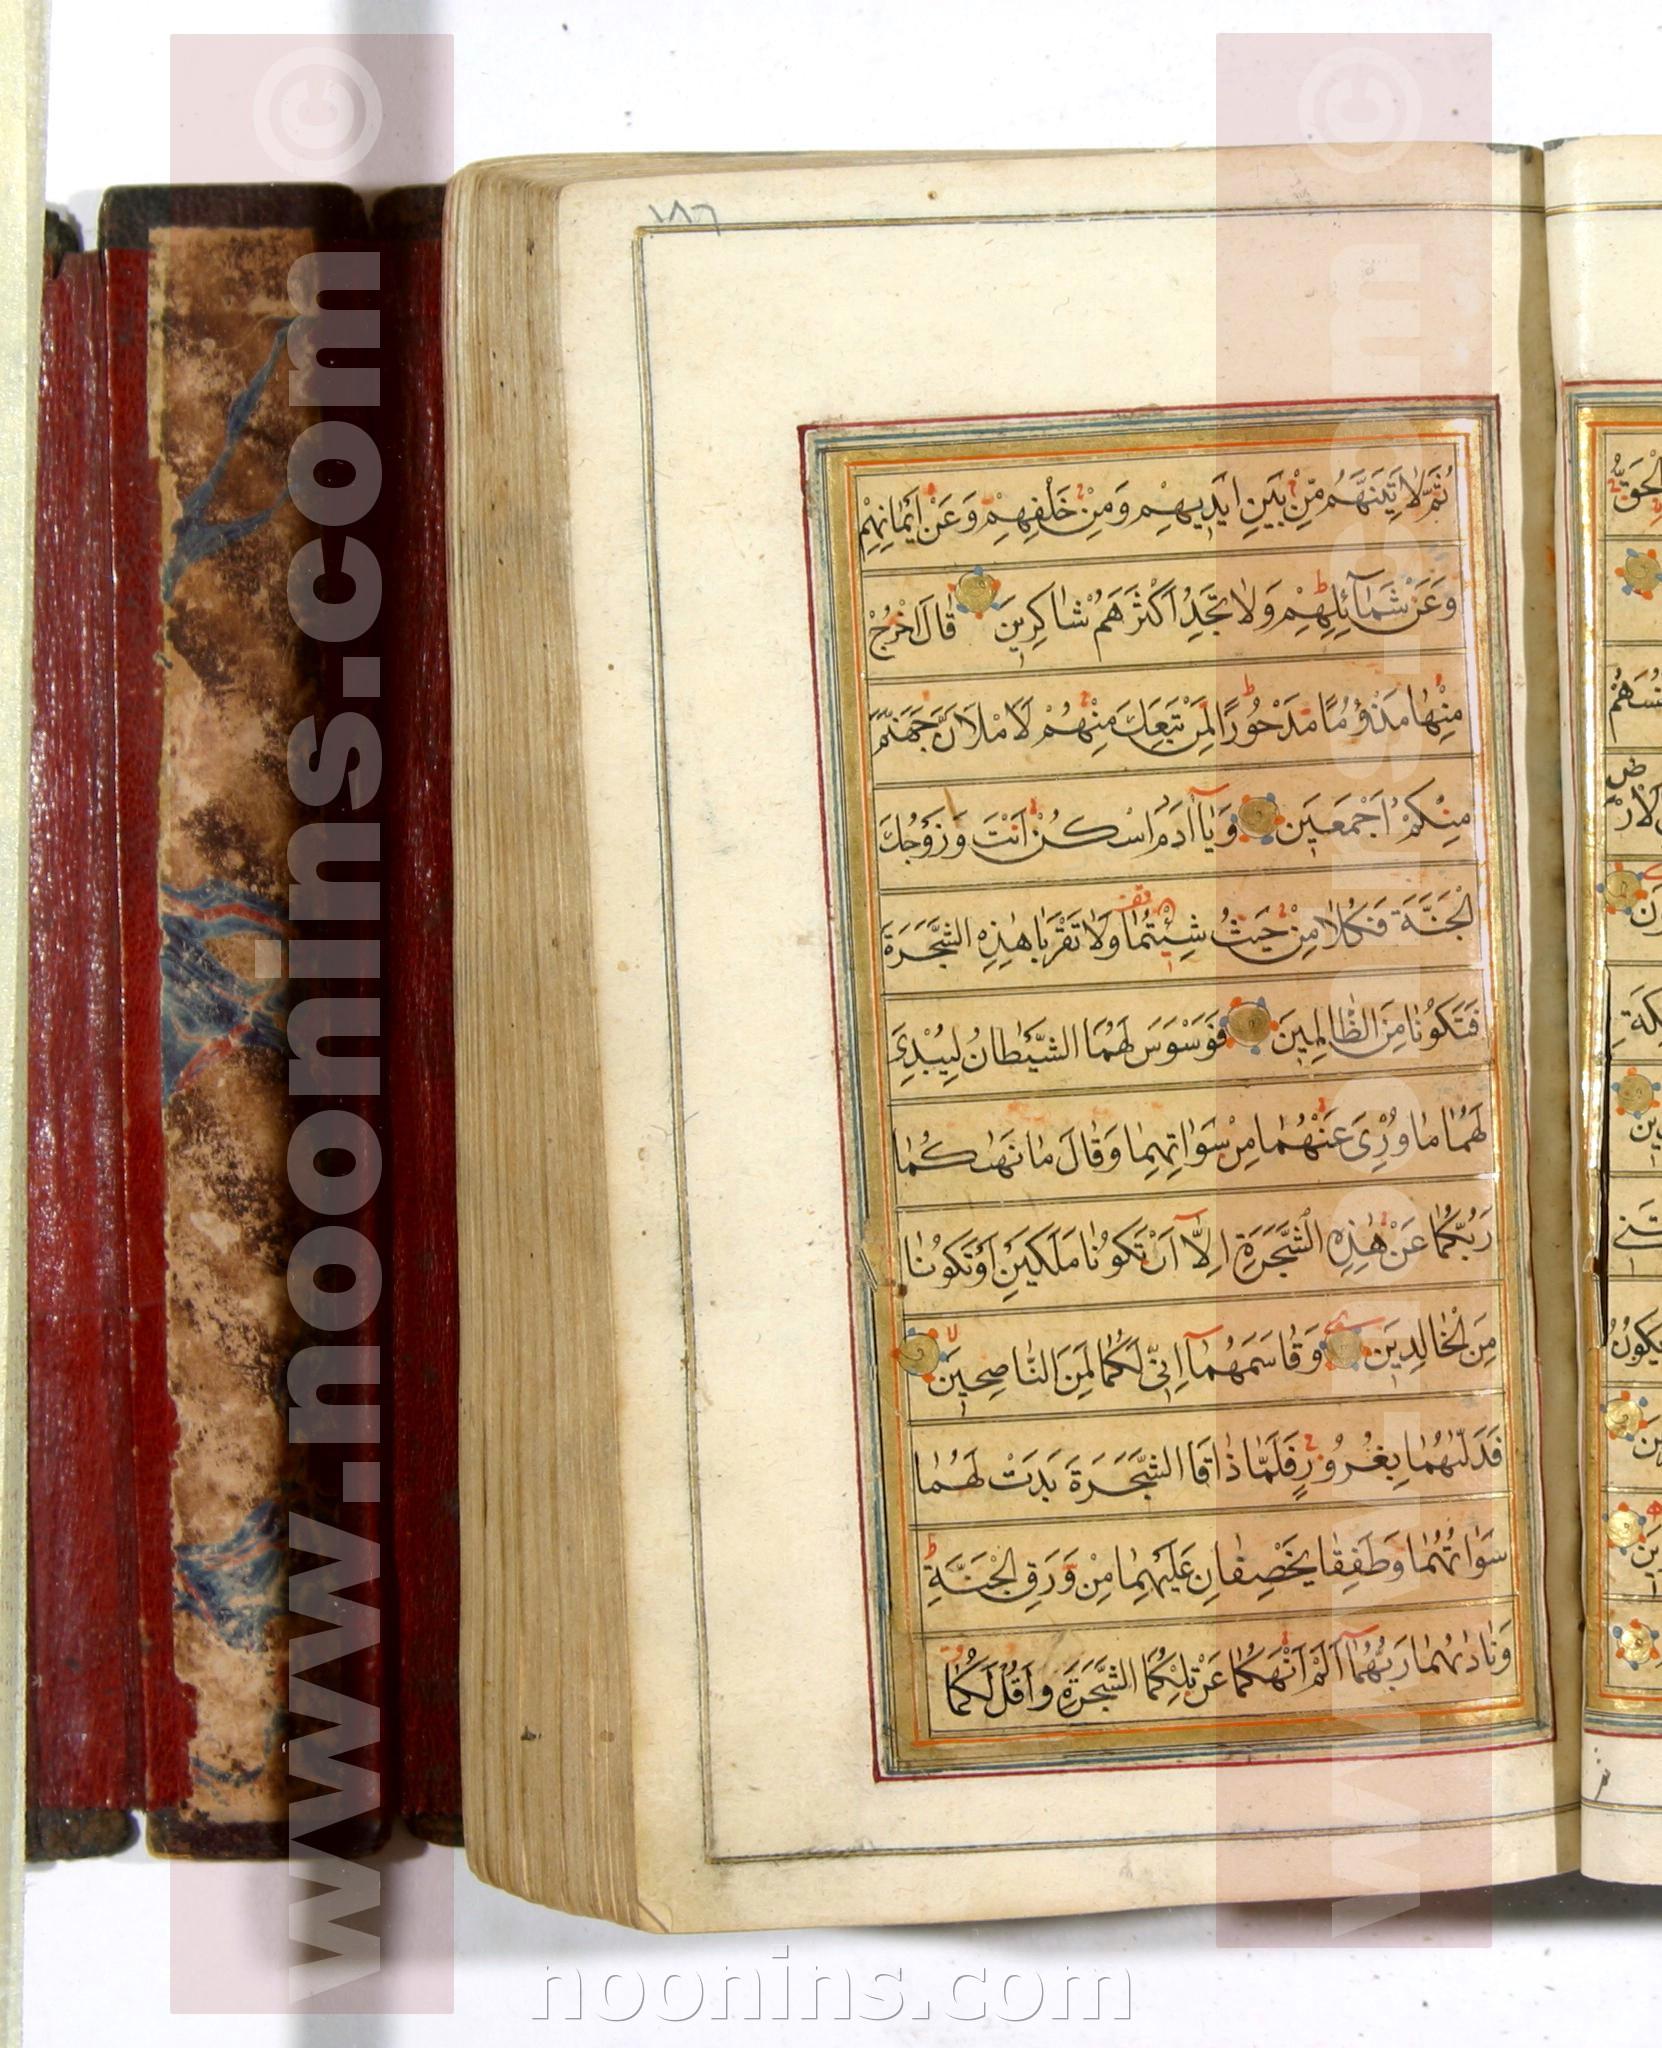 ١٨٦
ثُمَّ لَاٰتِيَنَّهُمْ مِنْ بَيْنِ اَيْدِيهِمْ وَمِنْ خَلْفِهِمْ وَعَنْ اَيْمَانِهِمْ
وَعَنْ شَمَآئِلِهِمْ وَلَا تَجِدُ اَكْثَرَهُمْ شَاكِرِينَ قَالَ اخْرُجْ
مِنْهَا مَذْؤُمًا مَدْحُورًا لَمَنْ تَبِعَكَ مِنْهُمْ لَاَمْلَاَنَّ جَهَنَّمَ
مِنْكُمْ اَجْمَعِينَ وَيَآ اٰدَمُ اسْكُنْ اَنْتَ وَزَوْجُكَ
الْجَنَّةَ فَكُلَا مِنْ حَيْثُ شِئْتُمَا وَلَا تَقْرَبَا هٰذِهِ الشَّجَرَةَ
فَتَكُونَا مِنَ الظَّالِمِينَ فَوَسْوَسَ لَهُمَا الشَّيْطَانُ لِيُبْدِيَ
لَهُمَا مَا وُرِيَ عَنْهُمَا مِنْ سَوْاٰتِهِمَا وَقَالَ مَا نَهٰىكُمَا
رَبُّكُمَا عَنْ هٰذِهِ الشَّجَرَةِ اِلَّآ اَنْ تَكُونَا مَلَكَيْنِ اَوْ تَكُونَا
مِنَ الْخَالِدِينَ وَقَاسَمَهُمَآ اِنِّي لَكُمَا لَمِنَ النَّاصِحِينَ
فَدَلّٰىهُمَا بِغُرُورٍ فَلَمَّا ذَاقَا الشَّجَرَةَ بَدَتْ لَهُمَا
سَوْاٰتُهُمَا وَطَفِقَا يَخْصِفَانِ عَلَيْهِمَا مِنْ وَرَقِ الْجَنَّةِ
وَنَادٰىهُمَا رَبُّهُمَآ اَلَمْ اَنْهَكُمَا عَنْ تِلْكُمَا الشَّجَرَةِ وَاَقُلْ لَكُمَا
www.noonins.com ©
www.noonins.com ©
noonins.com